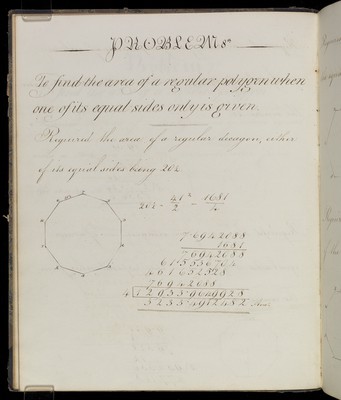 PROBLEM 8th
To find the area of a regular polygon when
one of its equal sides only is given.
Required the area of a regular decagon, either
of its equal sides being 20½
20½ = 41²/2 = 1681/4
7.6942088
1681
7 6942088
61 5536704
461 652528
76942088
4 | 12933.9649928
3233.4912482